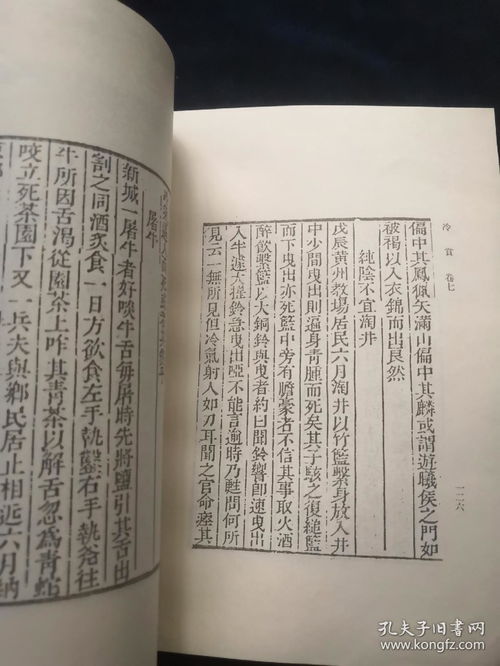 冷賞 卷七
一二六
偏中其鳳獵天滿山偏中其麟或謂遊曦侯之門如
被褐以入衣錦而出艮然
純陰不宜淘井
戊辰黃州教場居民六月淘井以竹籃繫身放入井
中少間曳出則遍身青腫而死矣其子駭之復縋籃
而下曳出亦死籃中旁有膽豪者不信其事取火酒
醉飲繫籃以大銅鈴與曳者約曰聞鈴響即速曳出
入半遽大搖鈴急曳出啞不能言逾時乃甦問何所
見云一無所見但冷氣射人如刃耳聞之官命瘞其
屠牛
新城一屠牛者好啖牛舌每屠時先將鹽引其舌出
割之同酒炙食一日方欲食左手執鹽右手執斧往
牛所因舌渴從園茶上咋其青茶以解舌忽為青蛇
咬立死茶園下又一兵夫與鄉民居止相近六月納
孔夫子旧书网
www.kongfz.com